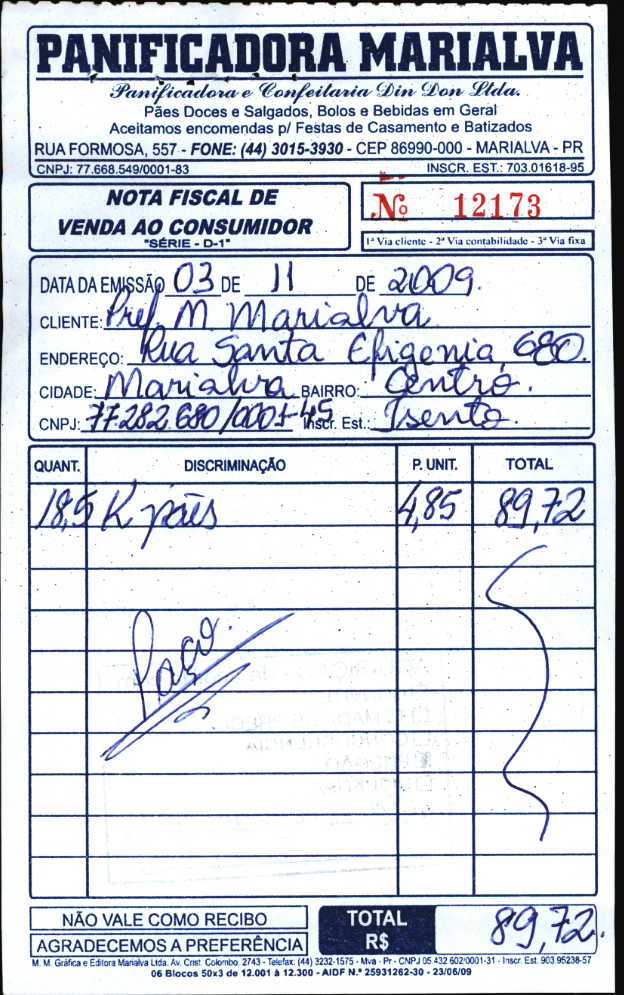 PANIFICADORA MARIALVA
Panificadora e Confeitaria Din Don Ltda.
Pães Doces e Salgados, Bolos e Bebidas em Geral
Aceitamos encomendas p/ Festas de Casamento e Batizados
RUA FORMOSA, 557 - FONE: (44) 3015-3930 - CEP 86990-000 - MARIALVA - PR
CNPJ: 77.668.549/0001-83 INSCR. EST.: 703.01618-95
NOTA FISCAL DE
VENDA AO CONSUMIDOR
"SÉRIE - D-1"
Nº 12173
1ª Via cliente - 2ª Via contabilidade - 3ª Via fixa
DATA DA EMISSÃO 03 DE 11 DE 2009.
CLIENTE: Pref M Marialva
ENDEREÇO: Rua Santa Efigenia, 680.
CIDADE: Marialva BAIRRO: Centro.
CNPJ: 77.282.680/0001-45 Inscr. Est.: Isento.
QUANT. DISCRIMINAÇÃO P. UNIT. TOTAL
18,5 K pães 4,85 89,72
Pago.
NÃO VALE COMO RECIBO
AGRADECEMOS A PREFERÊNCIA
TOTAL R$ 89,72.
M. M. Gráfica e Editora Marialva Ltda. Av. Crist. Colombo, 2743 - Telefax: (44) 3232-1575 - Mva - Pr - CNPJ 05.432.602/0001-31 - Inscr. Est. 903.95238-57
06 Blocos 50x3 de 12.001 à 12.300 - AIDF N.º 25931262-30 - 23/06/09